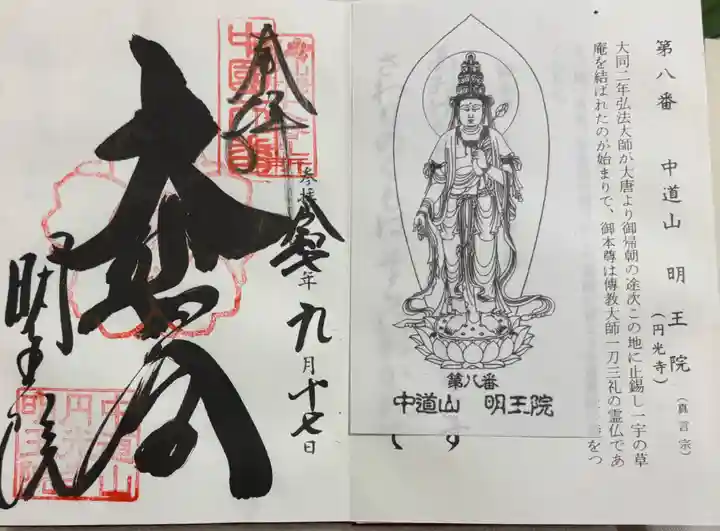 第八番 中道山 明王院 (円光寺) (真言宗)
大同二年弘法大師が大唐より御帰朝の途次この地に止錫し一宇の草
庵を結ばれたのが始まりで、御本尊は傳教大師一刀三礼の霊仏であ
をつ
す
第八番
中道山 明王院
奉拝
参拝 年九月十七日
大悲
明王院
中道山
円光寺
明王院